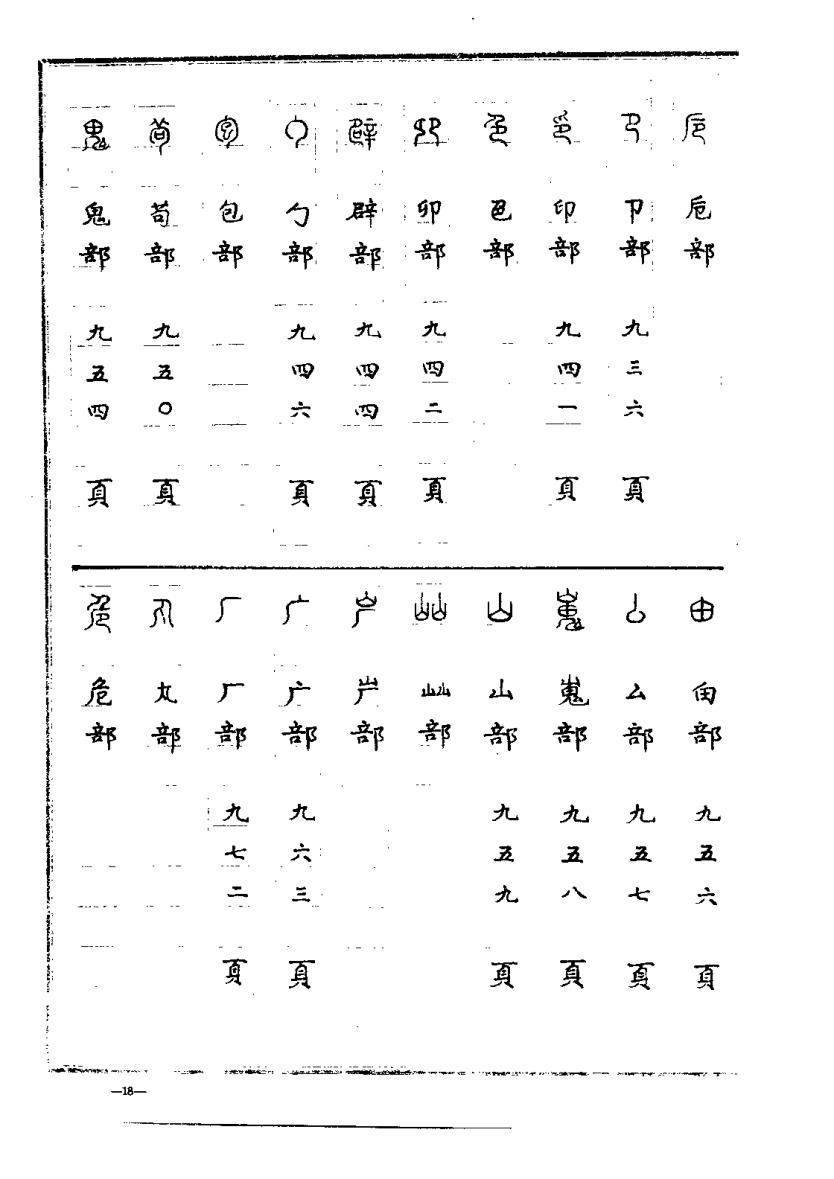 卮部
卩部 九三六頁
印部 九四一頁
色部
卯部 九四二頁
辟部 九四四頁
勹部 九四六頁
包部
茍部 九五〇頁
鬼部 九五四頁
甶部 九五六頁
厶部 九五七頁
嵬部 九五八頁
山部 九五九頁
屾部
屵部
广部 九六三頁
厂部 九七二頁
丸部
危部
—18—